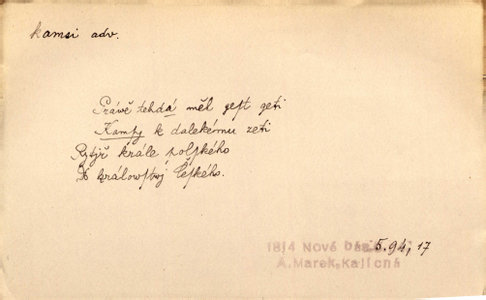 kamsi adv.
Práwě tehdá měl gest geti
Kamsy k dalekému zeti
Rytjř krále polského
Z králowstwj Češkého.
1814 Nové Básně 5.94, 17
A. Marek, Kalicná